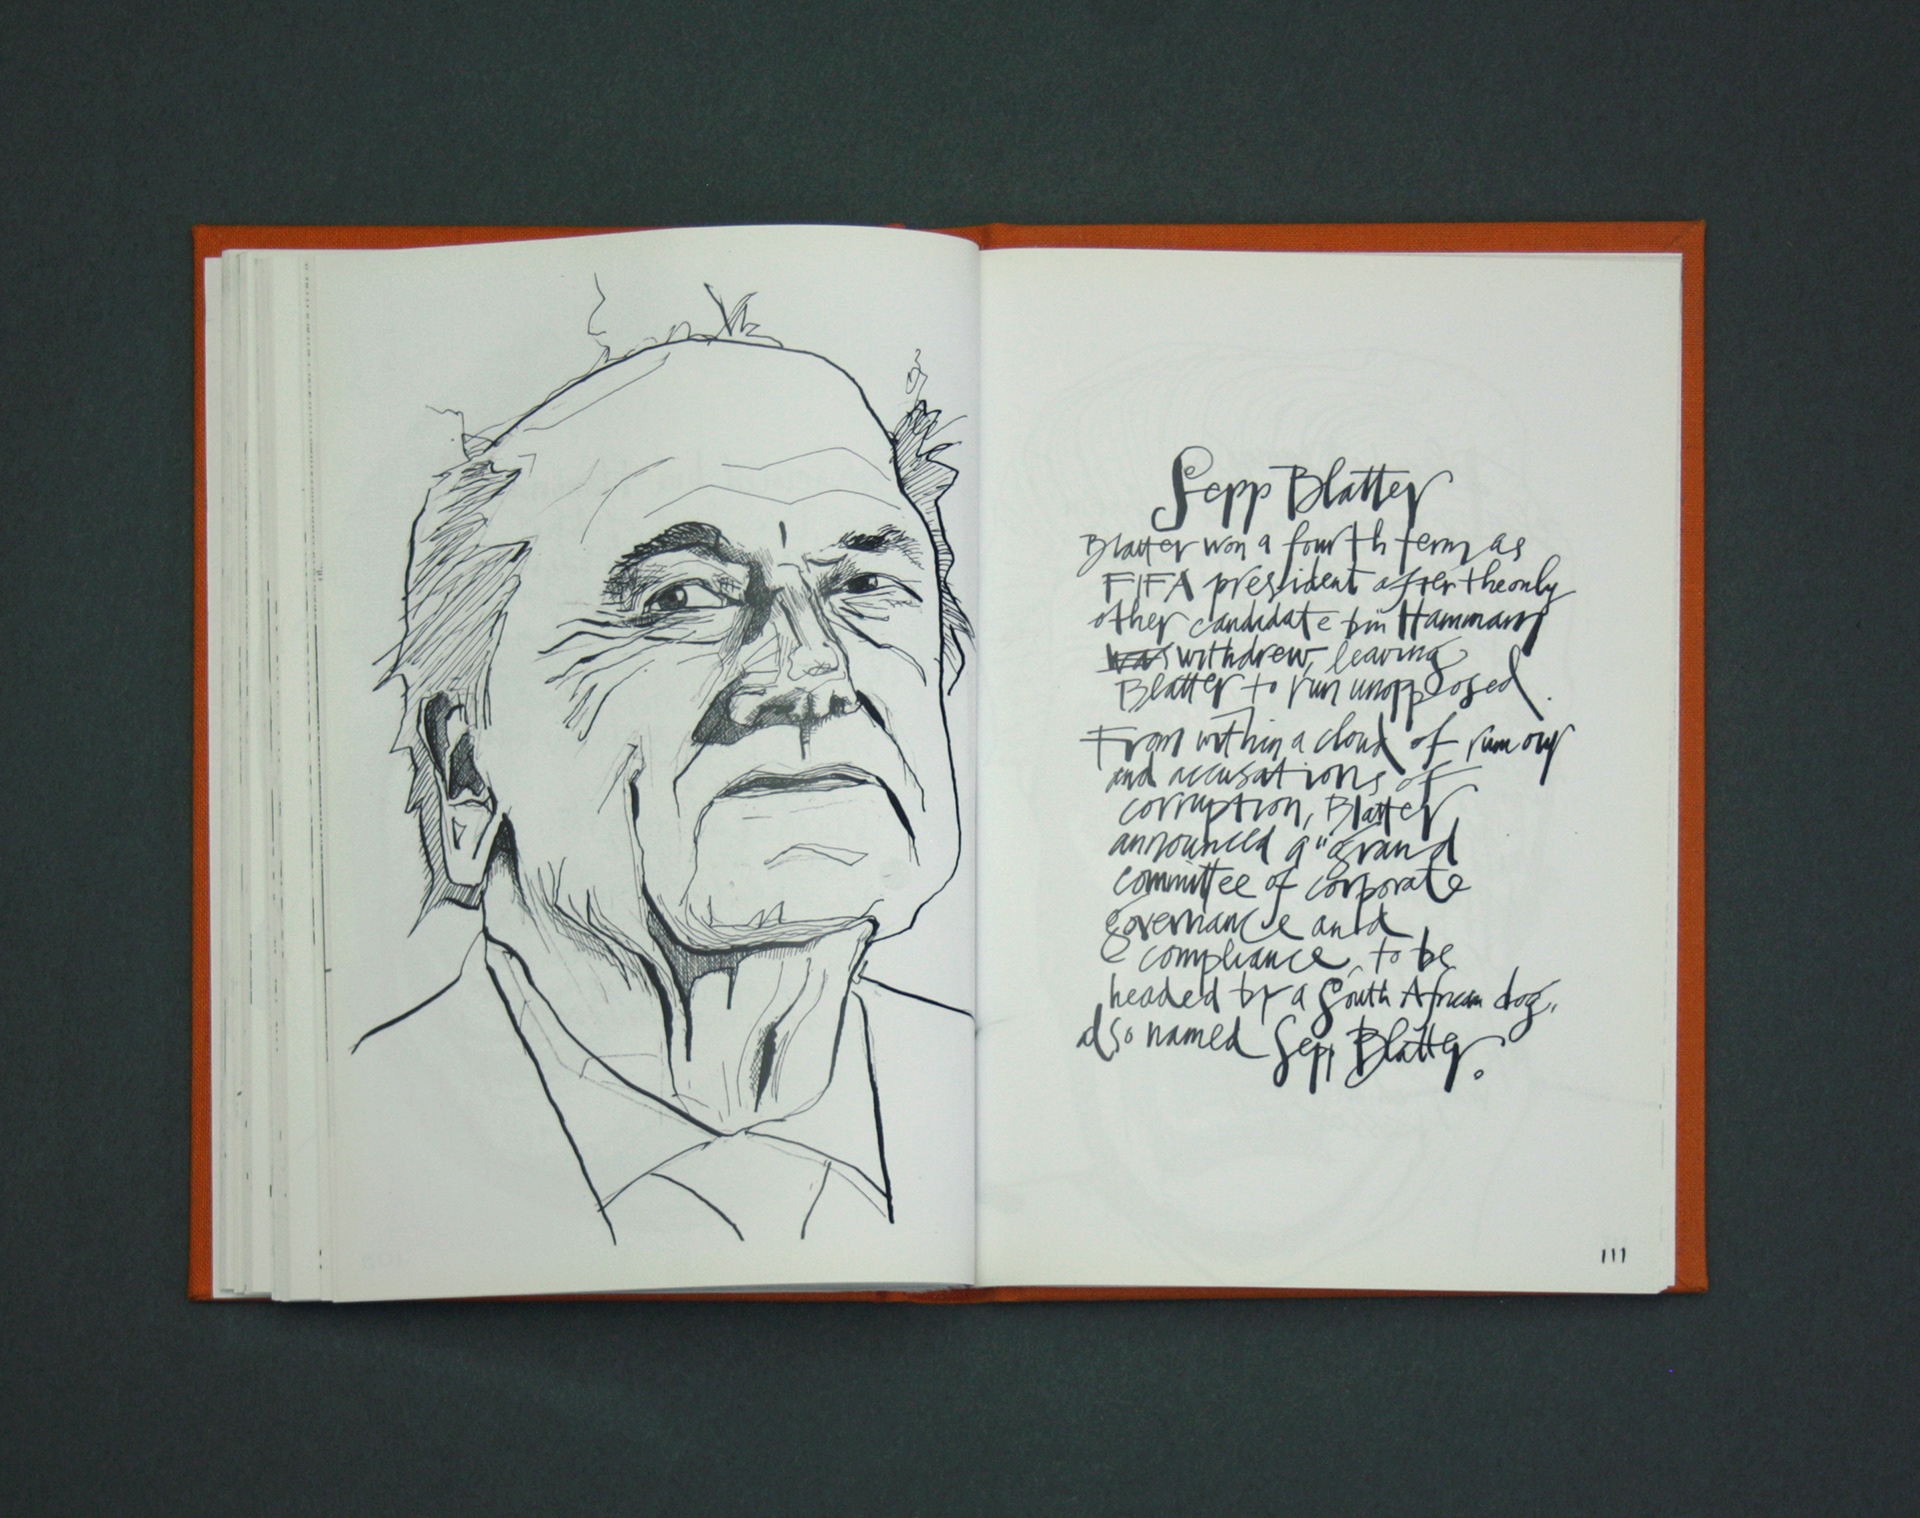 Sepp Blatter
Blatter won a fourth term as
FIFA president after the only
other candidate bin Hammam
was withdrew, leaving
Blatter to run unopposed.
From within a cloud of rumour
and accusations of
corruption, Blatter
announced a "grand
committee of corporate
governance and
compliance, to be
headed by a South African dog,,
also named Sepp Blatter.
111